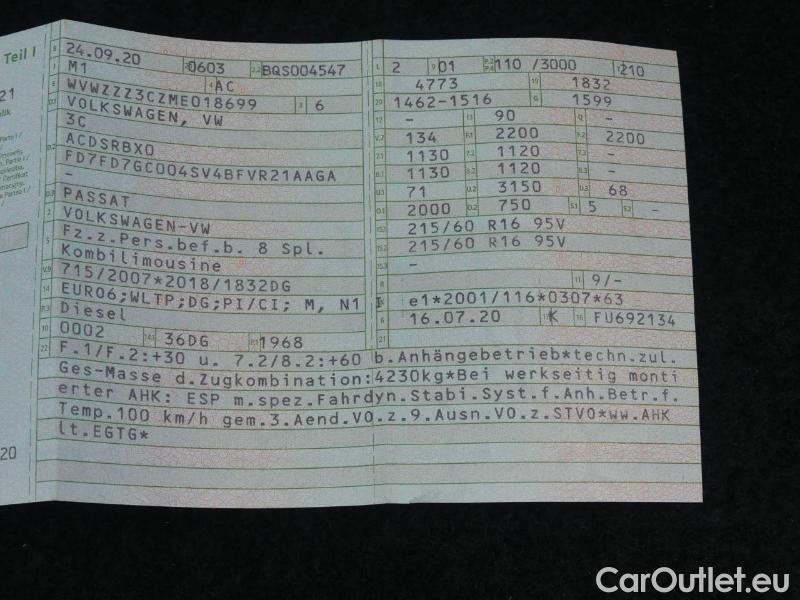 Teil I
24.09.20 0603 BQS004547
M1 AC
WVWZZZ3CZME018699 6
VOLKSWAGEN, VW
3C
ACDSRBX0
FD7FD7GC004SV4BFVR21AAGA
-
PASSAT
VOLKSWAGEN-VW
Fz.z.Pers.bef.b. 8 Spl.
Kombilimousine
715/2007*2018/1832DG
EURO6;WLTP;DG;PI/CI; M, N1 I
Diesel
0002 36DG 1968
2 01 110 /3000 210
4773 1832
1462-1516 1599
- 90 -
134 2200 2200
1130 1120 -
1130 1120 -
71 3150 68
2000 750 5 -
215/60 R16 95V
215/60 R16 95V
-
9/-
e1*2001/116*0307*63
16.07.20 K FU692134
F.1/F.2:+30 u. 7.2/8.2:+60 b.Anhängebetrieb*techn.zul.
Ges-Masse d.Zugkombination:4230kg*Bei werkseitig monti
erter AHK: ESP m.spez.Fahrdyn.Stabi.Syst.f.Anh.Betr.f.
Temp.100 km/h gem.3.Aend.VO.z.9.Ausn.VO.z.STVO*ww.AHK
lt.EGTG*
21
20
CarOutlet.eu